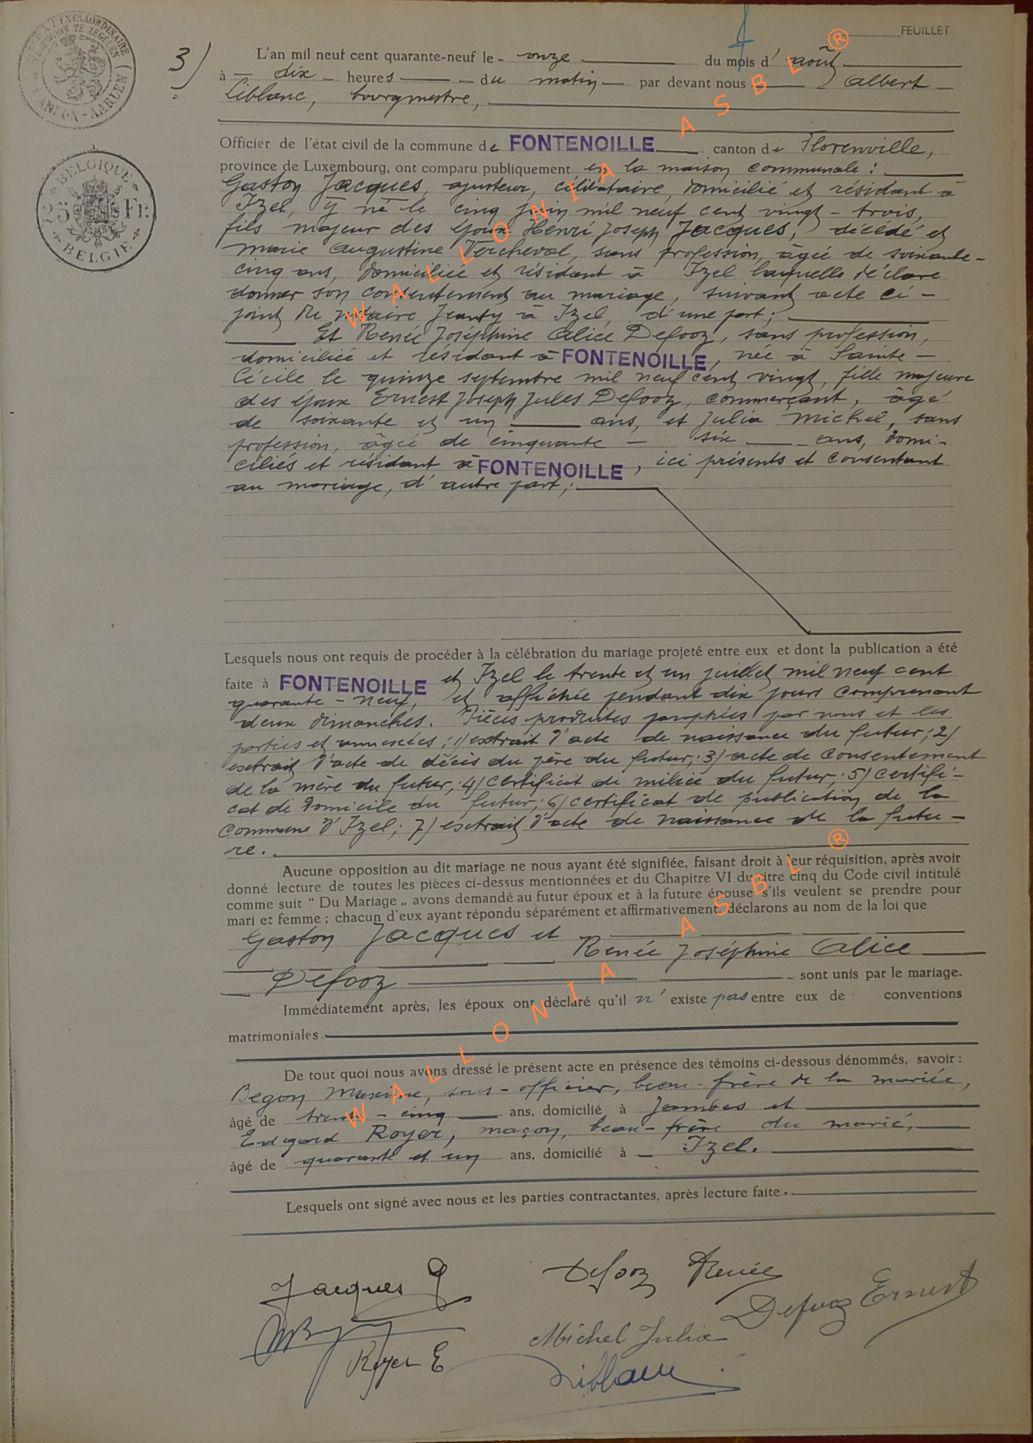 FEUILLET
3)
L'an mil neuf cent quarante-neuf le onze du mois d'août
à dix heures du matin par devant nous Albert
Liblanc, bourgmestre,
Officier de l'état civil de la commune de FONTENOILLE canton de Florenville,
province de Luxembourg, ont comparu publiquement en la maison communale :
Gaston Jacques, ajusteur, célibataire, domicilié et résidant à
Izel, y né le cinq juin mil neuf cent vingt-trois,
fils majeur des époux Henri Joseph Jacques, décédé et
Marie Augustine Vercheval, sans profession, âgée de soixante-
cinq ans, domiciliée et résidant à Izel laquelle déclare
donner son consentement au mariage, suivant acte ci-
joint du notaire Jeanty à Izel, d'une part ;
Et Renée Joséphine Alice Defooz, sans profession,
domiciliée et résidant à FONTENOILLE, née à Sainte-
Cécile le quinze septembre mil neuf cent vingt, fille majeure
des époux Ernest Joseph Jules Defooz, commerçant, âgé
de soixante et un ans, et Julia Michel, sans
profession, âgée de cinquante - six ans, domi-
ciliés et résidant à FONTENOILLE, ici présents et consentant
au mariage, d'autre part ;
Lesquels nous ont requis de procéder à la célébration du mariage projeté entre eux et dont la publication a été
faite à FONTENOILLE et Izel le trente et un juillet mil neuf cent
quarante-neuf, et affichée pendant dix jours comprenant
deux dimanches. Pièces produites paraphées par nous et les
parties et annexées : 1) extrait d'acte de naissance du futur ; 2)
extrait d'acte de décès du père du futur ; 3) acte de consentement
de la mère du futur ; 4) certificat de milice du futur ; 5) certifi-
cat de domicile du futur ; 6) certificat de publication de la
commune d'Izel ; 7) extrait d'acte de naissance de la futu-
re.
Aucune opposition au dit mariage ne nous ayant été signifiée, faisant droit à leur réquisition, après avoir
donné lecture de toutes les pièces ci-dessus mentionnées et du Chapitre VI du titre cinq du Code civil intitulé
comme suit “ Du Mariage „ avons demandé au futur époux et à la future épouse s'ils veulent se prendre pour
mari et femme ; chacun d'eux ayant répondu séparément et affirmativement, déclarons au nom de la loi que
Gaston Jacques et Renée Joséphine Alice
Defooz sont unis par le mariage.
Immédiatement après, les époux ont déclaré qu'il n'existe pas entre eux de conventions
matrimoniales
De tout quoi nous avons dressé le présent acte en présence des témoins ci-dessous dénommés, savoir :
Begon Maxime, sous-officier, beau-frère de la mariée,
âgé de trente-cinq ans, domicilié à Jambes et
Edgard Royer, maçon, beau-frère du marié,
âgé de quarante et un ans, domicilié à Izel.
Lesquels ont signé avec nous et les parties contractantes, après lecture faite.
Jacques G
Defooz Renée
Defooz Ernest
Michel Julia
Royer E
Liblanc
BELGIQUE
25 Fr.
BELGIE
WALLONIA ASBL ®
WALLONIA ASBL ®